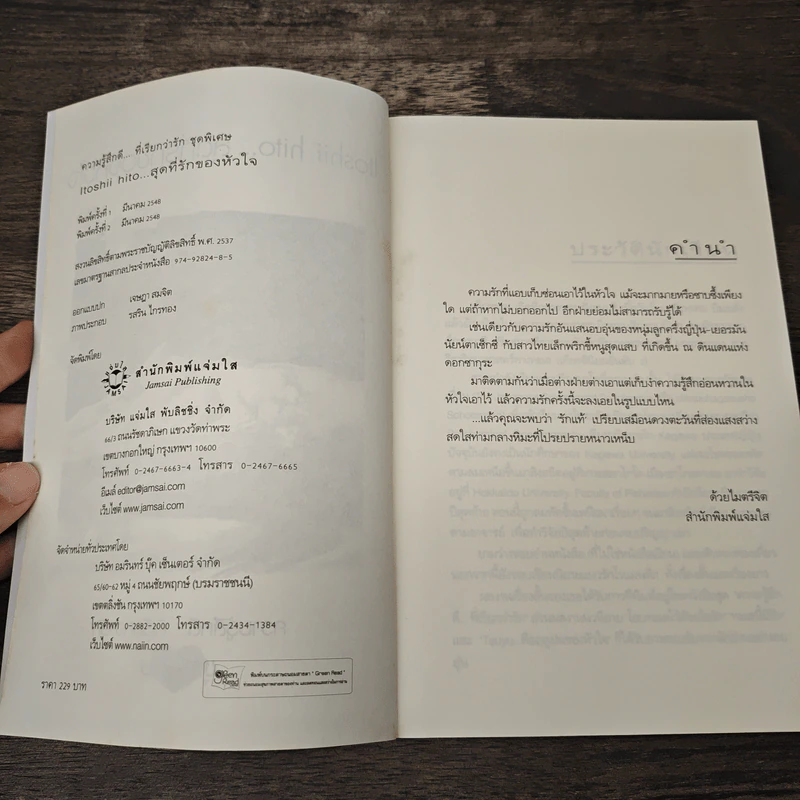 ความรู้สึกดี... ที่เรียกว่ารัก ชุดพิเศษ
Itoshii hito...สุดที่รักของหัวใจ
พิมพ์ครั้งที่ 1 มีนาคม 2548
พิมพ์ครั้งที่ 2 มีนาคม 2548
สงวนลิขสิทธิ์ตามพระราชบัญญัติลิขสิทธิ์ พ.ศ. 2537
เลขมาตรฐานสากลประจำหนังสือ 974-92824-8-5
ออกแบบปก เจษฎา สมจิต
ภาพประกอบ รสริน ไกรทอง
จัดพิมพ์โดย
สำนักพิมพ์แจ่มใส
Jamsai Publishing
บริษัท แจ่มใส พับลิชชิ่ง จำกัด
66/3 ถนนรัชดาภิเษก แขวงวัดท่าพระ
เขตบางกอกใหญ่ กรุงเทพฯ 10600
โทรศัพท์ 0-2467-6663-4 โทรสาร 0-2467-6665
อีเมล์ editor@jamsai.com
เว็บไซต์ www.jamsai.com
จัดจำหน่ายทั่วประเทศโดย
บริษัท อมรินทร์ บุ๊ค เซ็นเตอร์ จำกัด
65/60-62 หมู่ 4 ถนนชัยพฤกษ์ (บรมราชชนนี)
เขตตลิ่งชัน กรุงเทพฯ 10170
โทรศัพท์ 0-2882-2000 โทรสาร 0-2434-1384
เว็บไซต์ www.naiin.com
Green Read
พิมพ์บนกระดาษถนอมสายตา " Green Read "
ราคา 229 บาท
คำนำ
ความรักที่แอบเก็บซ่อนเอาไว้ในหัวใจ แม้จะมากมายหรือซาบซึ้งเพียง
ใด แต่ถ้าหากไม่บอกออกไป อีกฝ่ายย่อมไม่สามารถรับรู้ได้
เช่นเดียวกับความรักอันแสนอบอุ่นของหนุ่มลูกครึ่งญี่ปุ่น-เยอรมัน
นัยน์ตาเซ็กซี่ กับสาวไทยเล็กพริกขี้หนูสุดแสบ ที่เกิดขึ้น ณ ดินแดนแห่ง
ดอกซากุระ
มาติดตามกันว่าเมื่อต่างฝ่ายต่างเอาแต่เก็บงำความรู้สึกอ่อนหวานใน
หัวใจเอาไว้ แล้วความรักครั้งนี้จะลงเอยในรูปแบบไหน
...แล้วคุณจะพบว่า 'รักแท้' เปรียบเสมือนดวงตะวันที่ส่องแสงสว่าง
สดใสท่ามกลางหิมะที่โปรยปรายหนาวเหน็บ
ด้วยไมตรีจิต
สำนักพิมพ์แจ่มใส